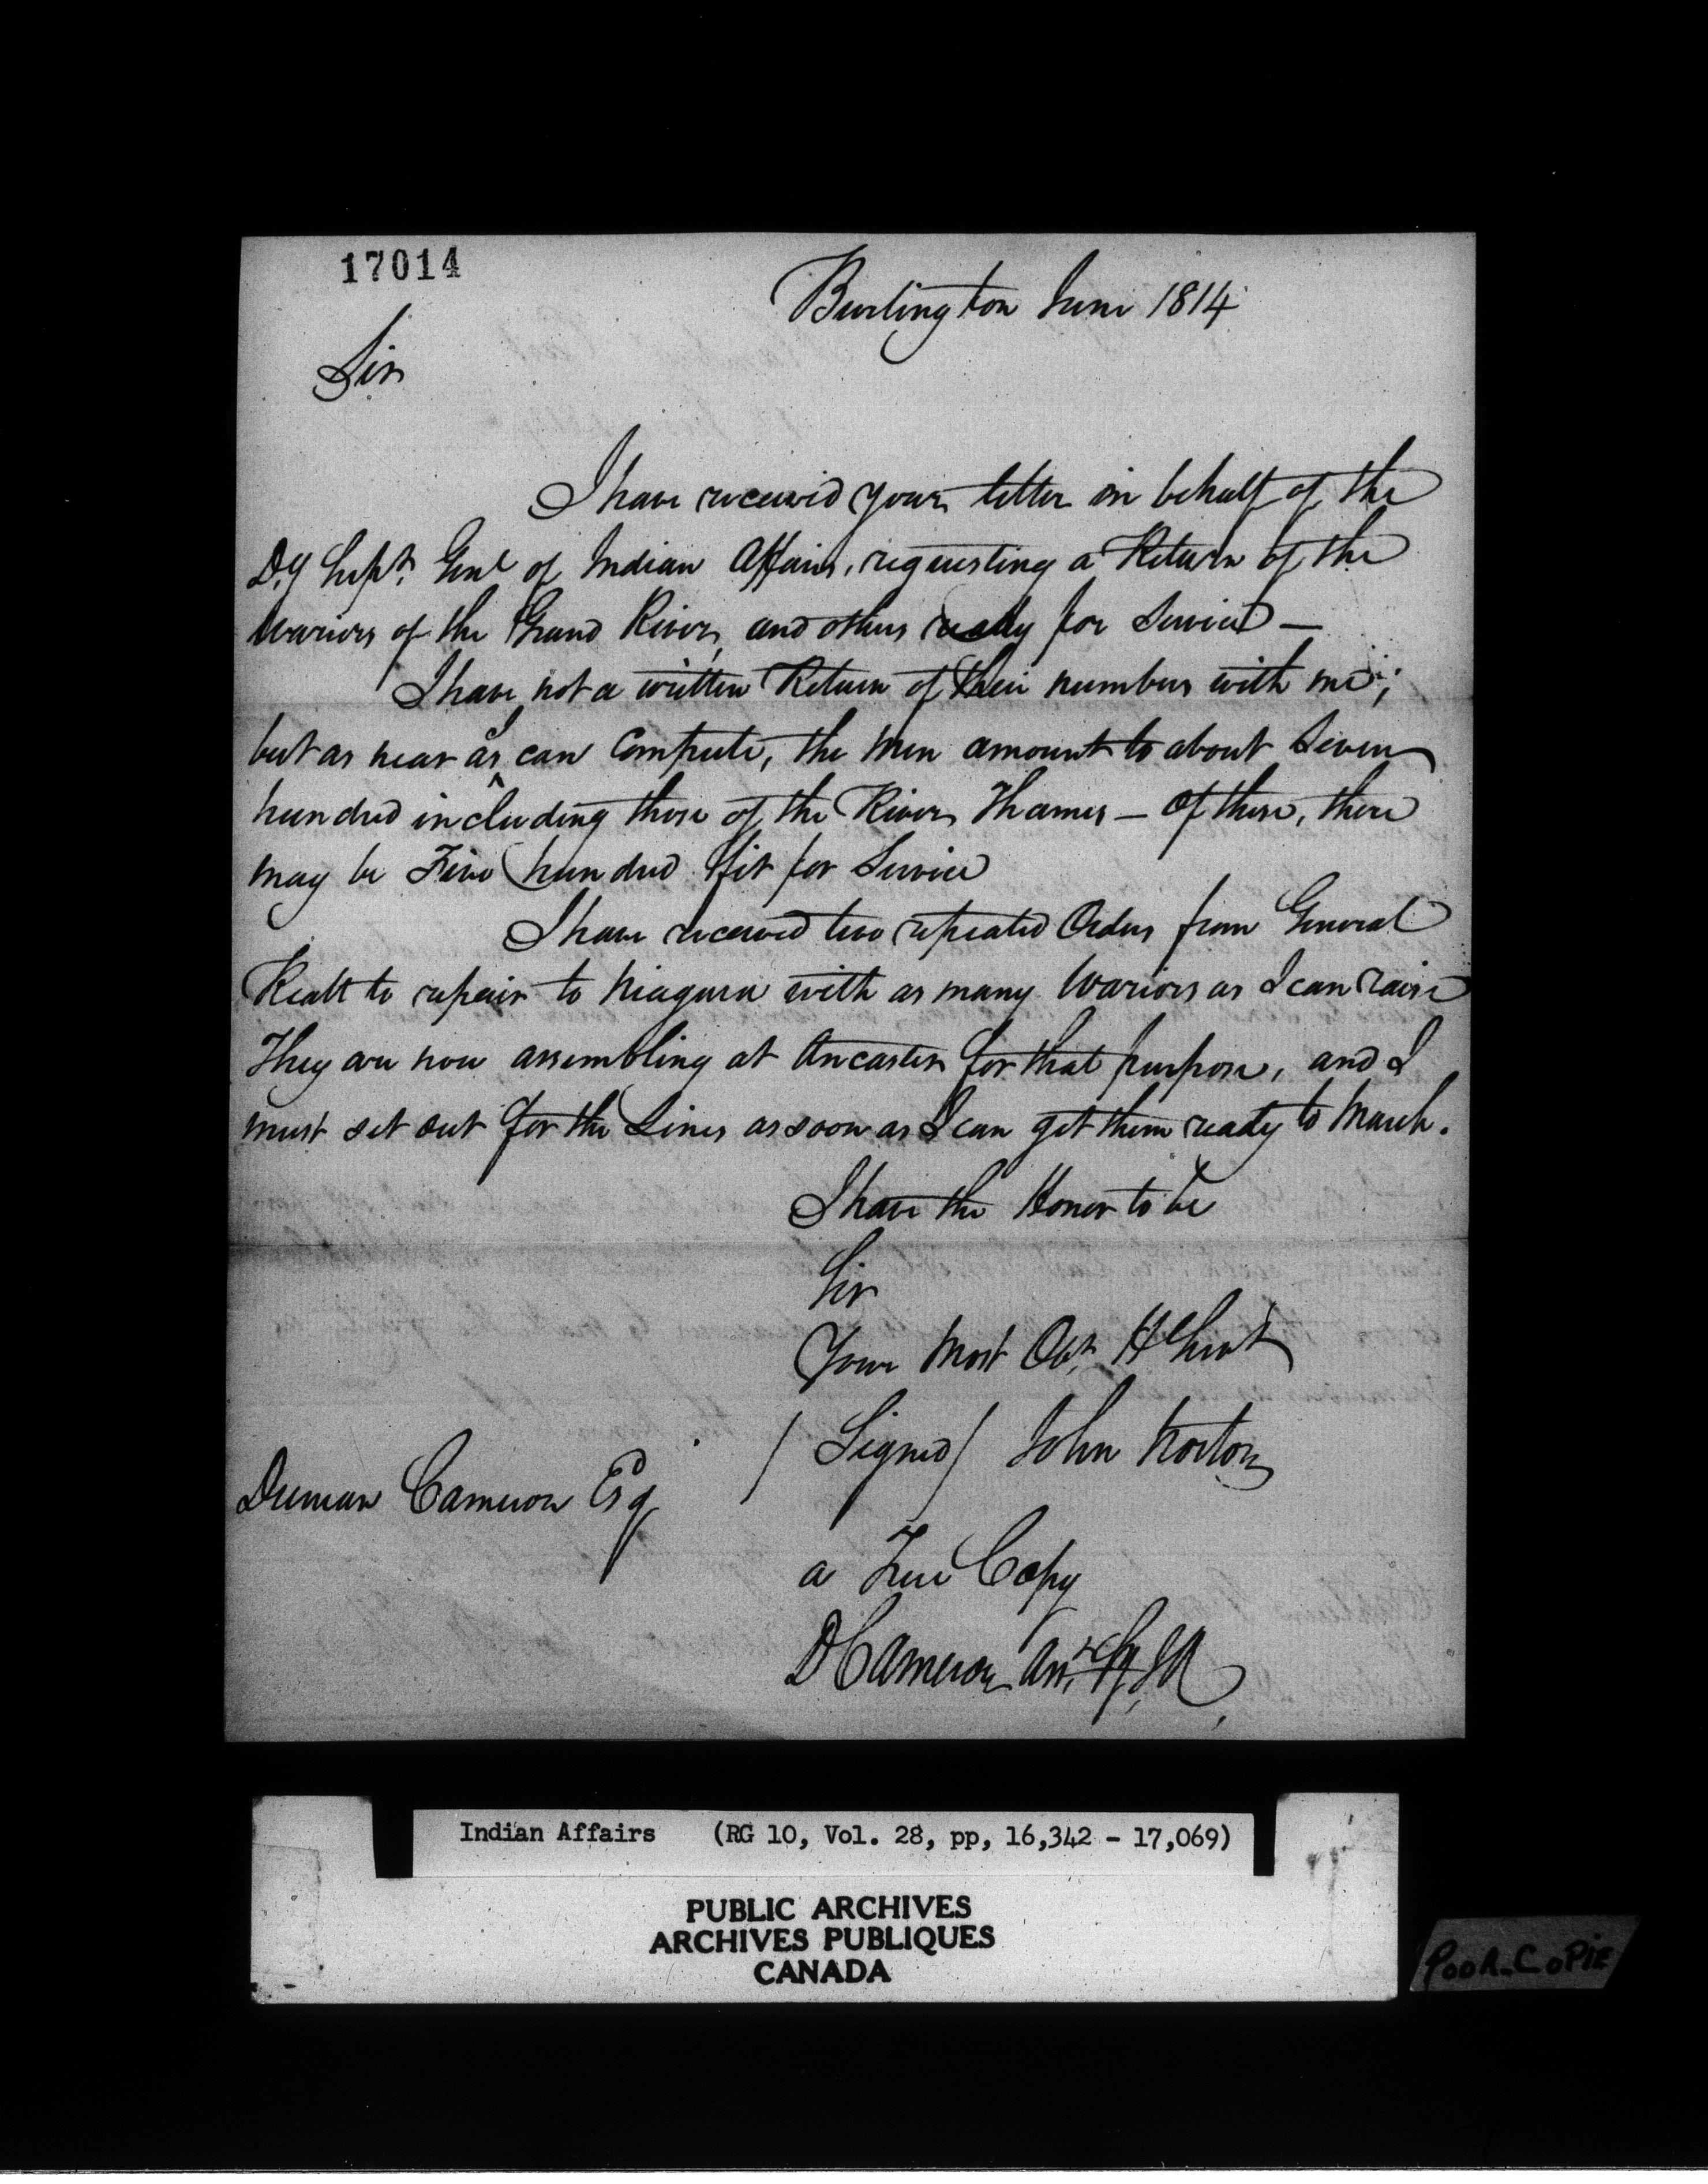 17014
Burlington June 1814
Sir
I have received your letter in behalf of the
D.y Supt. Genl of Indian Affairs, requesting a Return of the
Wariors of the Grand River, and others ready for Service —
I have not a written Return of their numbers with me;
but as near as I can Compute, the men amount to about Seven
hundred including those of the River Thames — Of these, there
may be Five hundred fit for Service
I have received two repeated Orders from General
Riall to repair to Niagara with as many Wariors as I can raise
They are now assembling at Ancaster for that purpose, and I
must set out for the Lines as soon as I can get them ready to March.
I have the Honor to be
Sir
Your Most Obt. H Servt
/ Signed / John Norton
Duncan Cameron Esq
a True Copy
D Cameron
Indian Affairs (RG 10, Vol. 28, pp, 16,342 - 17,069)
PUBLIC ARCHIVES
ARCHIVES PUBLIQUES
CANADA
POOR COPIE